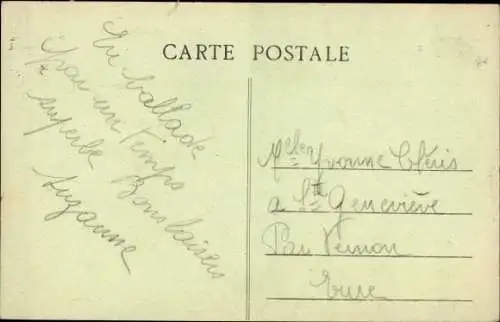 CARTE POSTALE
En ballade
par un temps
superbe Bons baisers
Suzanne
Melle Yvonne Cléris
a Ste Geneviève
Par Vernon
Eure